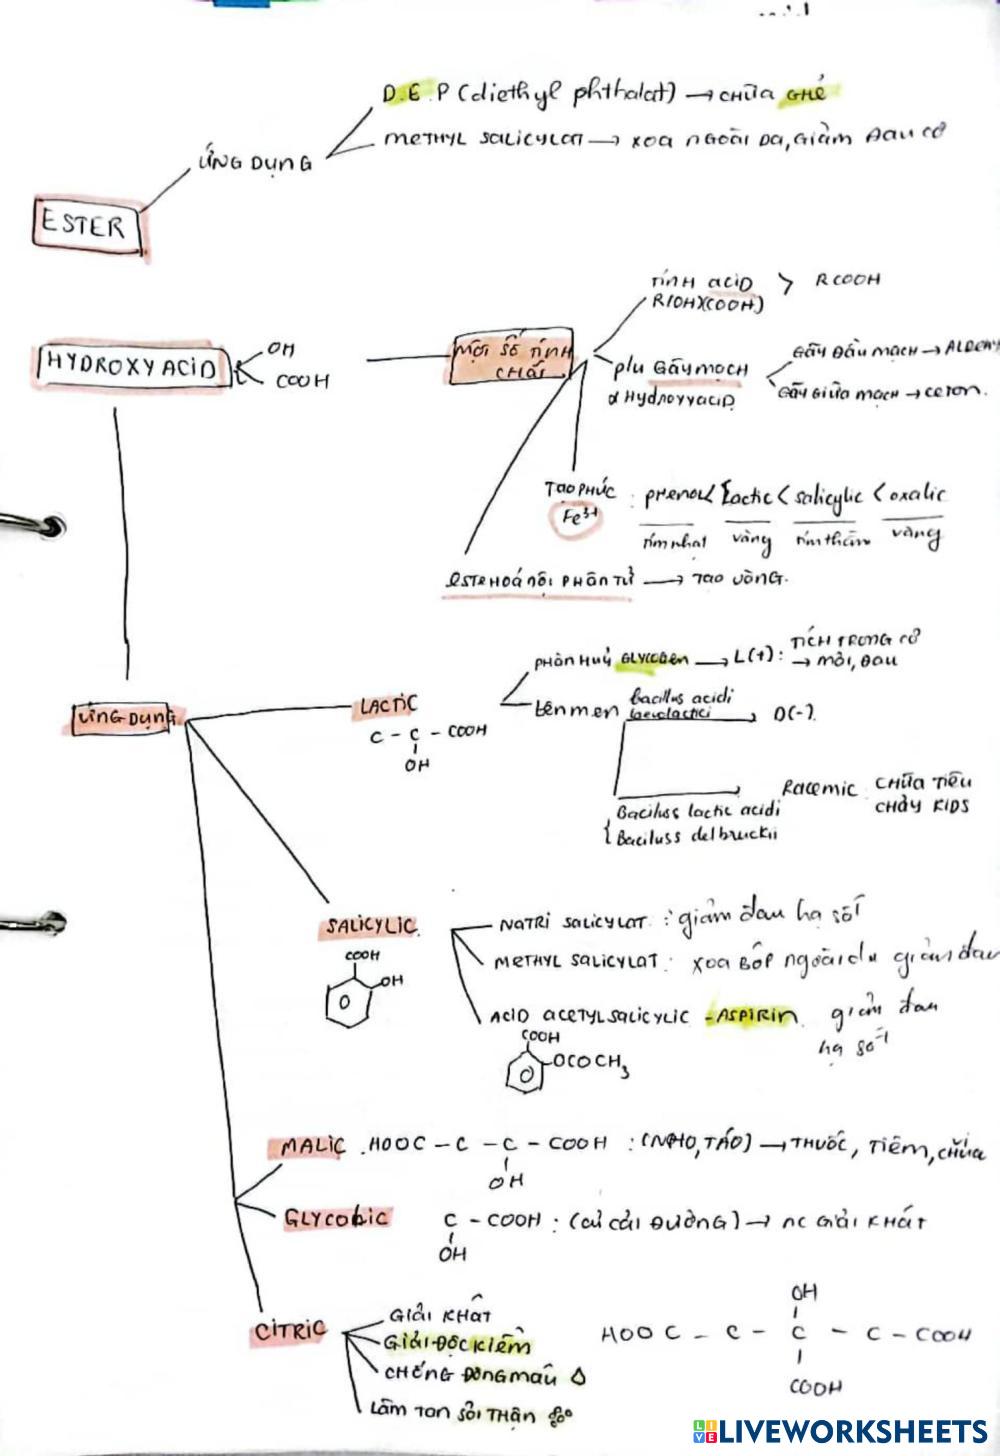 D.E.P (diethyl phthalat) → CHỮA GHẺ
METHYL SALICYLAT → XOA NGOÀI DA, GIẢM ĐAU CƠ
ỨNG DỤNG
ESTER
TÍNH ACID > RCOOH
R(OH)(COOH)
HYDROXY ACID
OH
COOH
MỘT SỐ TÍNH CHẤT
pƯ GÃY MẠCH
α HydroxyaciD
GÃY ĐẦU MẠCH → ALDEHY
GÃY GIỮA MẠCH → CETON.
TẠO PHỨC Fe3+ : pHENOL < Lactic < salicylic < oxalic
tím nhạt vàng tím thẫm vàng
ESTE HOÁ NỘI PHÂN TỬ → TẠO VÒNG.
ỨNG DỤNG
LACTIC
C - C - COOH
OH
PHÂN HUỶ GLYCOGEN → L(+) : TÍCH TRONG CƠ
→ MỎI, ĐAU
LÊN MEN
Bacillus acidi
laevolactici
D(-).
Racemic CHỮA TIÊU
CHẢY KIDS
Baciluss lactic acidi
Baciluss delbruckii
SALICYLIC
COOH
OH
NATRI SALICYLAT : giảm đau hạ sốt
METHYL SALICYLAT : XOA BÓP ngoài da giảm đau
ACID ACETYL SALICYLIC - ASPIRIN giảm đau
hạ sốt
COOH
OCOCH3
MALIC . HOOC - C - C - COOH : (NHO, TÁO) → THUỐC, TIÊM, CHỮA
OH
GLYCOLIC C - COOH : (CỦ CẢI ĐƯỜNG) → NC GIẢI KHÁT
OH
CITRIC
GIẢI KHÁT
GIẢI ĐỘC KIỀM
CHỐNG ĐÔNG MÁU
LÀM TAN SỎI THẬN
OH
HOOC - C - C - C - COOH
COOH
LIVEWORKSHEETS